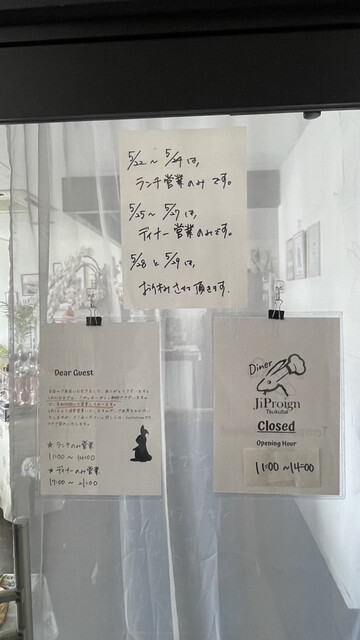 5/22 ~ 5/24 は、
ランチ営業のみです。
5/25 ~ 5/27 は、
ディナー営業のみです。
5/28 と 5/29 は、
お休みさせて頂きます.
Dear Guest
★ ランチのみ営業
11:00 ~ 14:00
★ ディナーのみ営業
17:00 ~ 21:00
Diner
JiProign
Tsukuba
Closed
Opening Hour
11:00 ~ 14:00